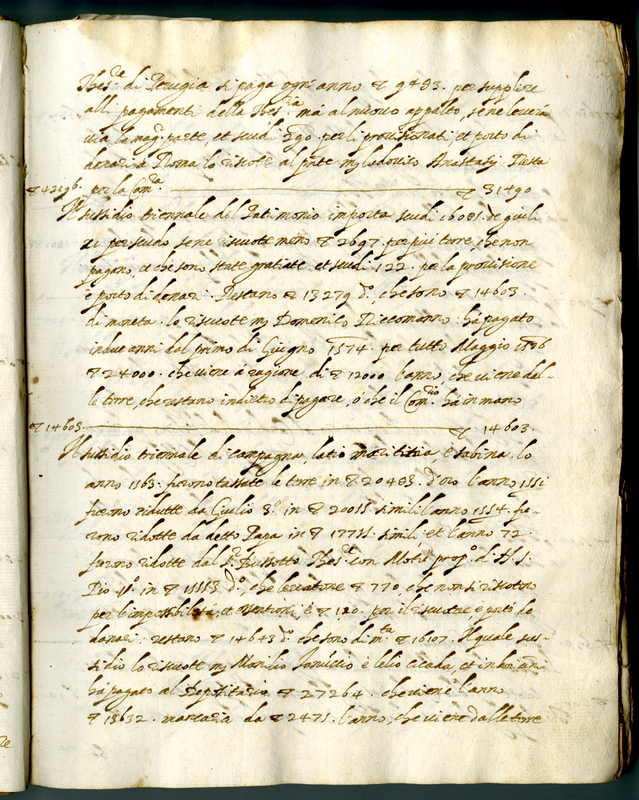 Thes.re di Perugia si paga ogni anno ▽ 9483. per supplire
alli pagamenti della Thes.ria ma al nuovo appalto, se ne leverà
via la mag.r parte, et scudi per li provisionati, et porto di
denari a Roma lo riscote al p̃nte m. Ludovico Anastasij Resta
per la Com.ra ▽ 31490
Il sussidio triennale del Patrimonio importa scudi 16081. de quali
per scudo se ne riscuote meno ▽ 2697. per più terre, che non
pagano, et che sono state gratiate et scudi 122. per la provisione
e porto di denari. Restano ▽ 13279 d.o, che sono ▽ 14603.
di moneta. lo riscuote m. Domenico ha pagato
in due anni dal primo di Giugno 1574. per tutto Maggio 1576
▽ 24000. che viene à ragione di ▽ 12000 l'anno, che viene del-
le terre, che restano indietro di pagare, o che il Com.rio hà in mano
▽ 14603. ▽ 14603.
Il sussidio triennale di campagna, latio maritima e sabina. lo
anno 1563. furono tassate le terre in ▽ 20483. d'oro l'anno 1551
furono ridutte da Giulio 3.o in ▽ 20015 simili l'anno 1554. fu-
rono ridotte da detto Papa in ▽ 17711. simili et l'anno 72.
furono ridotte dal S.r Thes.re con Motu prop.o di
Pio in ▽ 15553 d.o, che ▽ 770, che non si riscotono
per l'impossibilità, et esentioni, e ▽ 120. per il riscuotere, e porto de
denari restano ▽ 14643 d.o che sono di m.ta ▽ 16107. Il quale sus-
sidio lo riscuote m. Manilio e lelio Cicada, et in doi anni
hà pagato al Depositario ▽ 27264. che viene l'anno
▽ 13632. mancaria da ▽ 2475. l'anno, che viene dalle terre